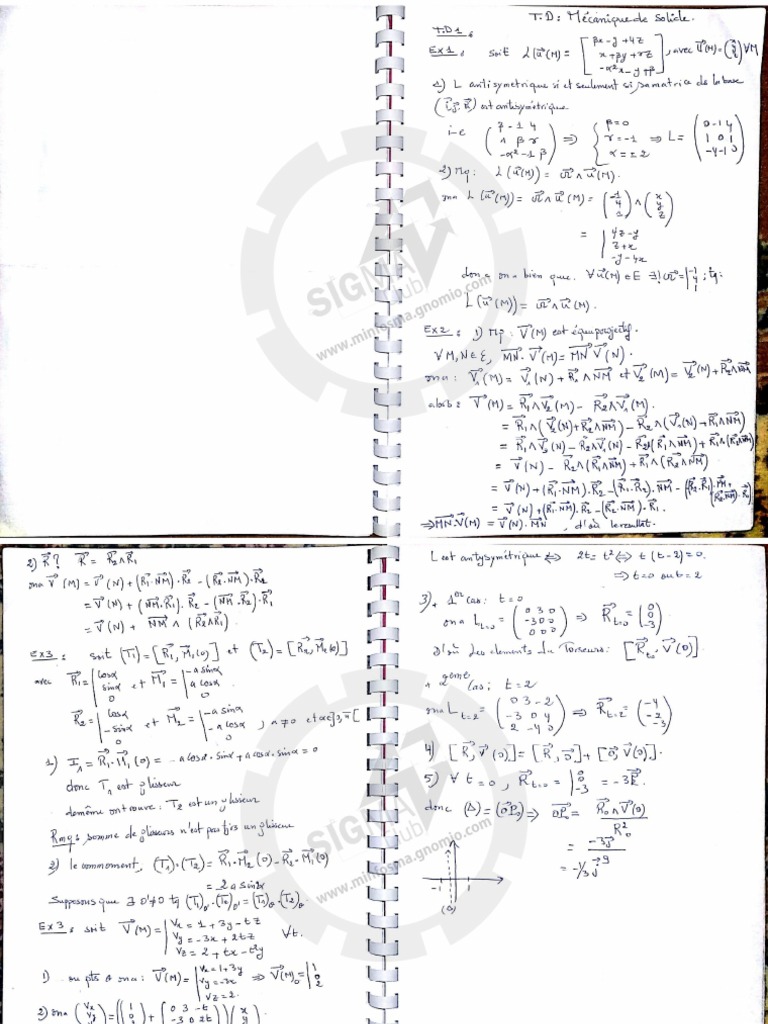 T.D : Mécanique de Solide.
T.D 1 :
Ex 1 : soit L(u⃗(M)) = [βx - y + 4z ; x + βy + γz ; -α²x - y + β], avec u⃗(M) = (x y z) ∀M
1) L antisymetrique si et seulement si sa matrice de la base
(i⃗, j⃗, k⃗) est antisymétrique
i-e ( β -1 4 ; 1 β γ ; -α² -1 β ) ⟹ { β=0 ; γ=-1 ; α=±2 ⟹ L = ( 0 -1 4 ; 1 0 1 ; -4 -1 0 )
2) Mq : L(u⃗(M)) = ∧ u⃗(M).
ona L(u⃗(M)) = ∧ u⃗(M) = ( -1 4 1 ) ∧ ( x y z )
= | 4z - y ; z + x ; -y - 4x
donc on a bien que. ∀u⃗(M) ∈ E ∃! = | -1 4 1 ; tq:
L(u⃗(M)) = ∧ u⃗(M).
Ex 2 : 1) Mq : V⃗(M) est équiprojectif.
∀ M, N ∈ ξ, MN⃗ · V⃗(M) = MN⃗ V⃗(N).
ona : V⃗₁(M) = V⃗₁(N) + R⃗₁ ∧ NM⃗ et V⃗₂(M) = V⃗₂(N) + R⃗₂ ∧ NM⃗
alors : V⃗(M) = R⃗₁ ∧ V⃗₂(M) - R⃗₂ ∧ V⃗₁(M).
= R⃗₁ ∧ (V⃗₂(N) + R⃗₂ ∧ NM⃗) - R⃗₂ ∧ (V⃗₁(N) + R⃗₁ ∧ NM⃗)
= R⃗₁ ∧ V⃗₂(N) - R⃗₂ ∧ V⃗₁(N) - R⃗₂ ∧ (R⃗₁ ∧ NM⃗) + R⃗₁ ∧ (R⃗₂ ∧ NM⃗)
= V⃗(N) - R⃗₂ ∧ (R⃗₁ ∧ NM⃗) + R⃗₁ ∧ (R⃗₂ ∧ NM⃗)
= V⃗(N) + (R⃗₁·NM⃗)·R⃗₂ - (R⃗₁·R⃗₂)·NM⃗
= V⃗(N) + (R⃗₁·NM⃗)·R⃗₂ - (R⃗₂·NM⃗)·R⃗₁.
⟹ MN⃗·V⃗(M) = V⃗(N)·MN⃗ , d'où le résultat.
2) R⃗ ? R⃗ = R⃗₂ ∧ R⃗₁
ona V⃗(M) = V⃗(N) + (R⃗₁·NM⃗)·R⃗₂ - (R⃗₂·NM⃗)·R⃗₂
= V⃗(N) + (NM⃗·R⃗₁)·R⃗₂ - (NM⃗·R⃗₂)·R⃗₁
= V⃗(N) + NM⃗ ∧ (R⃗₂ ∧ R⃗₁)
Ex 3 : soit (T₁) = [R⃗₁, M⃗₁(0)] et (T₂) = [R⃗₂, M⃗₂(0)]
avec R⃗₁ = | cosα ; sinα ; 0 et M⃗₁ = | -a sinα ; a cosα ; 0
R⃗₂ = | cosα ; -sinα ; 0 et M⃗₂ = | -a sinα ; -a cosα ; 0 , a≠0
1) I₁ = R⃗₁·M⃗₁(0) = -a cosα·sinα + a cosα·sinα = 0
donc T₁ est glisseur
de même on trouve : T₂ est un glisseur
Rmq : somme de glisseurs n'est pas tjrs un glisseur
2) le commoment, (T₁)·(T₂) = R⃗₁·M⃗₂(0) - R⃗₂·M⃗₁(0)
= 2a sin2α
Supposons que ∃ O'≠O tq (T₁)·(T₂) = (T₁)·(T₂)
Ex 3 : soit V⃗(M) = | Vx = 1 + 3y - tz ; Vy = -3x + 2tz ; Vz = 2 + tx - t²y ∀t.
1) au pts O ona : V⃗(M) = | Vx = 1 + 3y ; Vy = -3x ; Vz = 2. ⟹ V⃗(M)₀ = | 1 0 2
2) ona ( Vx Vy ) = ( ( 1 0 ) + [ 0 3 -t ; -3 0 2t ] ) ( x y )
L est antysymétrique ⟺ 2t = t² ⟺ t(t-2) = 0.
⟹ t=0 ou t=2
3) * 1er cas : t=0
ona L t=0 = ( 0 3 0 ; -3 0 0 ; 0 0 0 ) ⟹ R⃗ t=0 = ( 0 0 -3 )
d'où Les elements du Torseurs : [R⃗ t₀, V⃗(0)]
* 2 cas ; t=2
ona L t=2 = ( 0 3 -2 ; -3 0 4 ; 2 -4 0 ) ⟹ R⃗ t=2 = ( -4 -2 -3 )
4) [R⃗, V⃗(0)] = [R⃗, 0⃗] + [0⃗, V⃗(0)].
5) ∀ t=0, R⃗ t=0 = | 0 0 -3 = -3k⃗.
donc (Δ) = (OP₀⃗) ⟹ OP₀⃗ = R⃗₀ ∧ V⃗(0) / R₀²
= -3j⃗ / 9
= -1/3 j⃗
-1 1
(Δ)
SIGMA
club
www.minfosma.gnomio.com
SIGMA
club
www.minfosma.gnomio.com